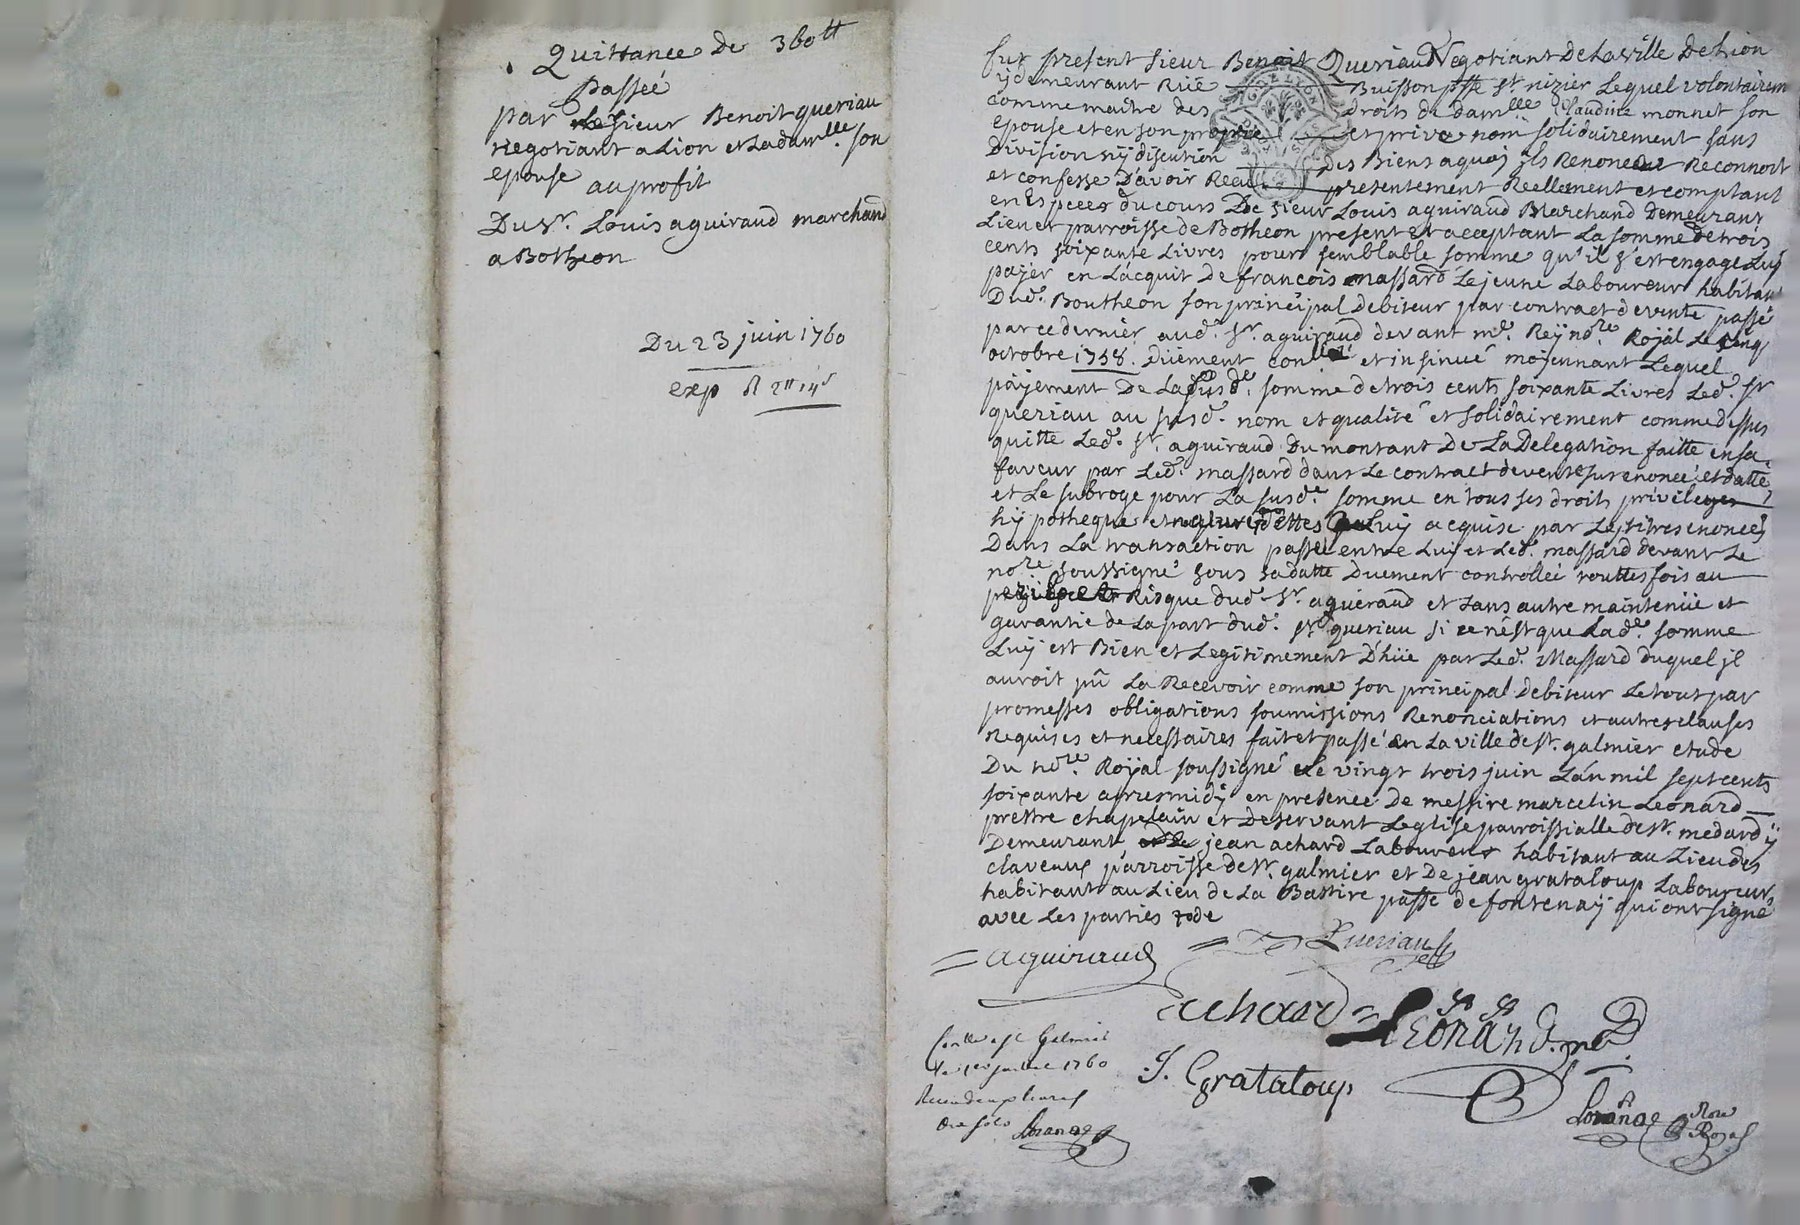 Quittance de 360tt
Passeé
par Sieur Benoit queriau
negotiant a Lion et La damlle. son
epouse au profit
Du Sr. Louis aguiraud marchand
a Botheon
Du 23 juin 1760
exp 2tt 14s
fut present Sieur Benoit Queriau Negotiant De La ville De Lion
ÿ demeurant Rüe Buisson psse St. nizier Lequel volontairem
comme maitre des Droits de damlle Claudine monnet son
epouse et en son propre et privé nom solidairement sans
Division nÿ discution des Biens a quoy ils Renonce Reconnoit
et confesse D'avoir Receu presentement Reellement et comptant
en Especes du cours De sieur Louis aguiraud Marchand Demeurant
Lieu et parroisse de Botheon present Et acceptant La somme de trois
cents soixante Livres pour semblable somme qu'il s'est engagé Luÿ
paÿer en L'acquit de francois massard Le jeune Laboureur habitant
Dud. Boutheon son principal debiteur par contract de vente passé
par ce dernier aud. Sr. aguiraud devant me. Reÿ nore. Roÿal Le cinq
octobre 1758. Düement conllé et insinué moÿennant Lequel
päÿement De La susde. somme de trois cents soixante Livres Led. Sr
queriau au susd. nom et qualité et solidairement comme dessus
quitte Led. Sr. aguiraud Du montant De La Delegation faitte en sa
faveur par Led. massard dans Le contract de vente sur enoncé et datté
et Le subroge pour La susde. somme en tous ses droits privileges
hÿpotheque et Luÿ acquise par Les titres enoncés
Dans La transaction passé entre Luÿ et Led. massard devant Le
nore soussigné sous sa datte Duement controlleé touttes fois au
Risque dud. Sr. aguéraud et sans autre maintenüe et
garantie de La part dud. Sr queriau si ce n'est que Lade. somme
Luÿ est Bien et Legitimement D'hüe par Led. Massard duquel jl
auroit pû La Recevoir comme son principal debiteur Le tout par
promesses obligations soumissions Renonciations et autres clauses
Requises et necessaires fait et passé en La ville de St. galmier etude
Du nore. Roÿal soussigné Le vingt trois juin L'an mil sept cents
soixante apres midÿ en presence De messire marcelin Leonard
prestre chapelain et Deservant Leglise parroissialle de St. medard ÿ
Demeurant jean achard Laboureur habitant au Lieu des
claveaus parroisse de St. galmier et De jean grataloup Laboureur
habitant au Lieu de La Bastire passe de fontenaÿ qui ont signé
avec Les parties
aguiraud
Queriau
achard
Leonard
J. Grataloup
1760